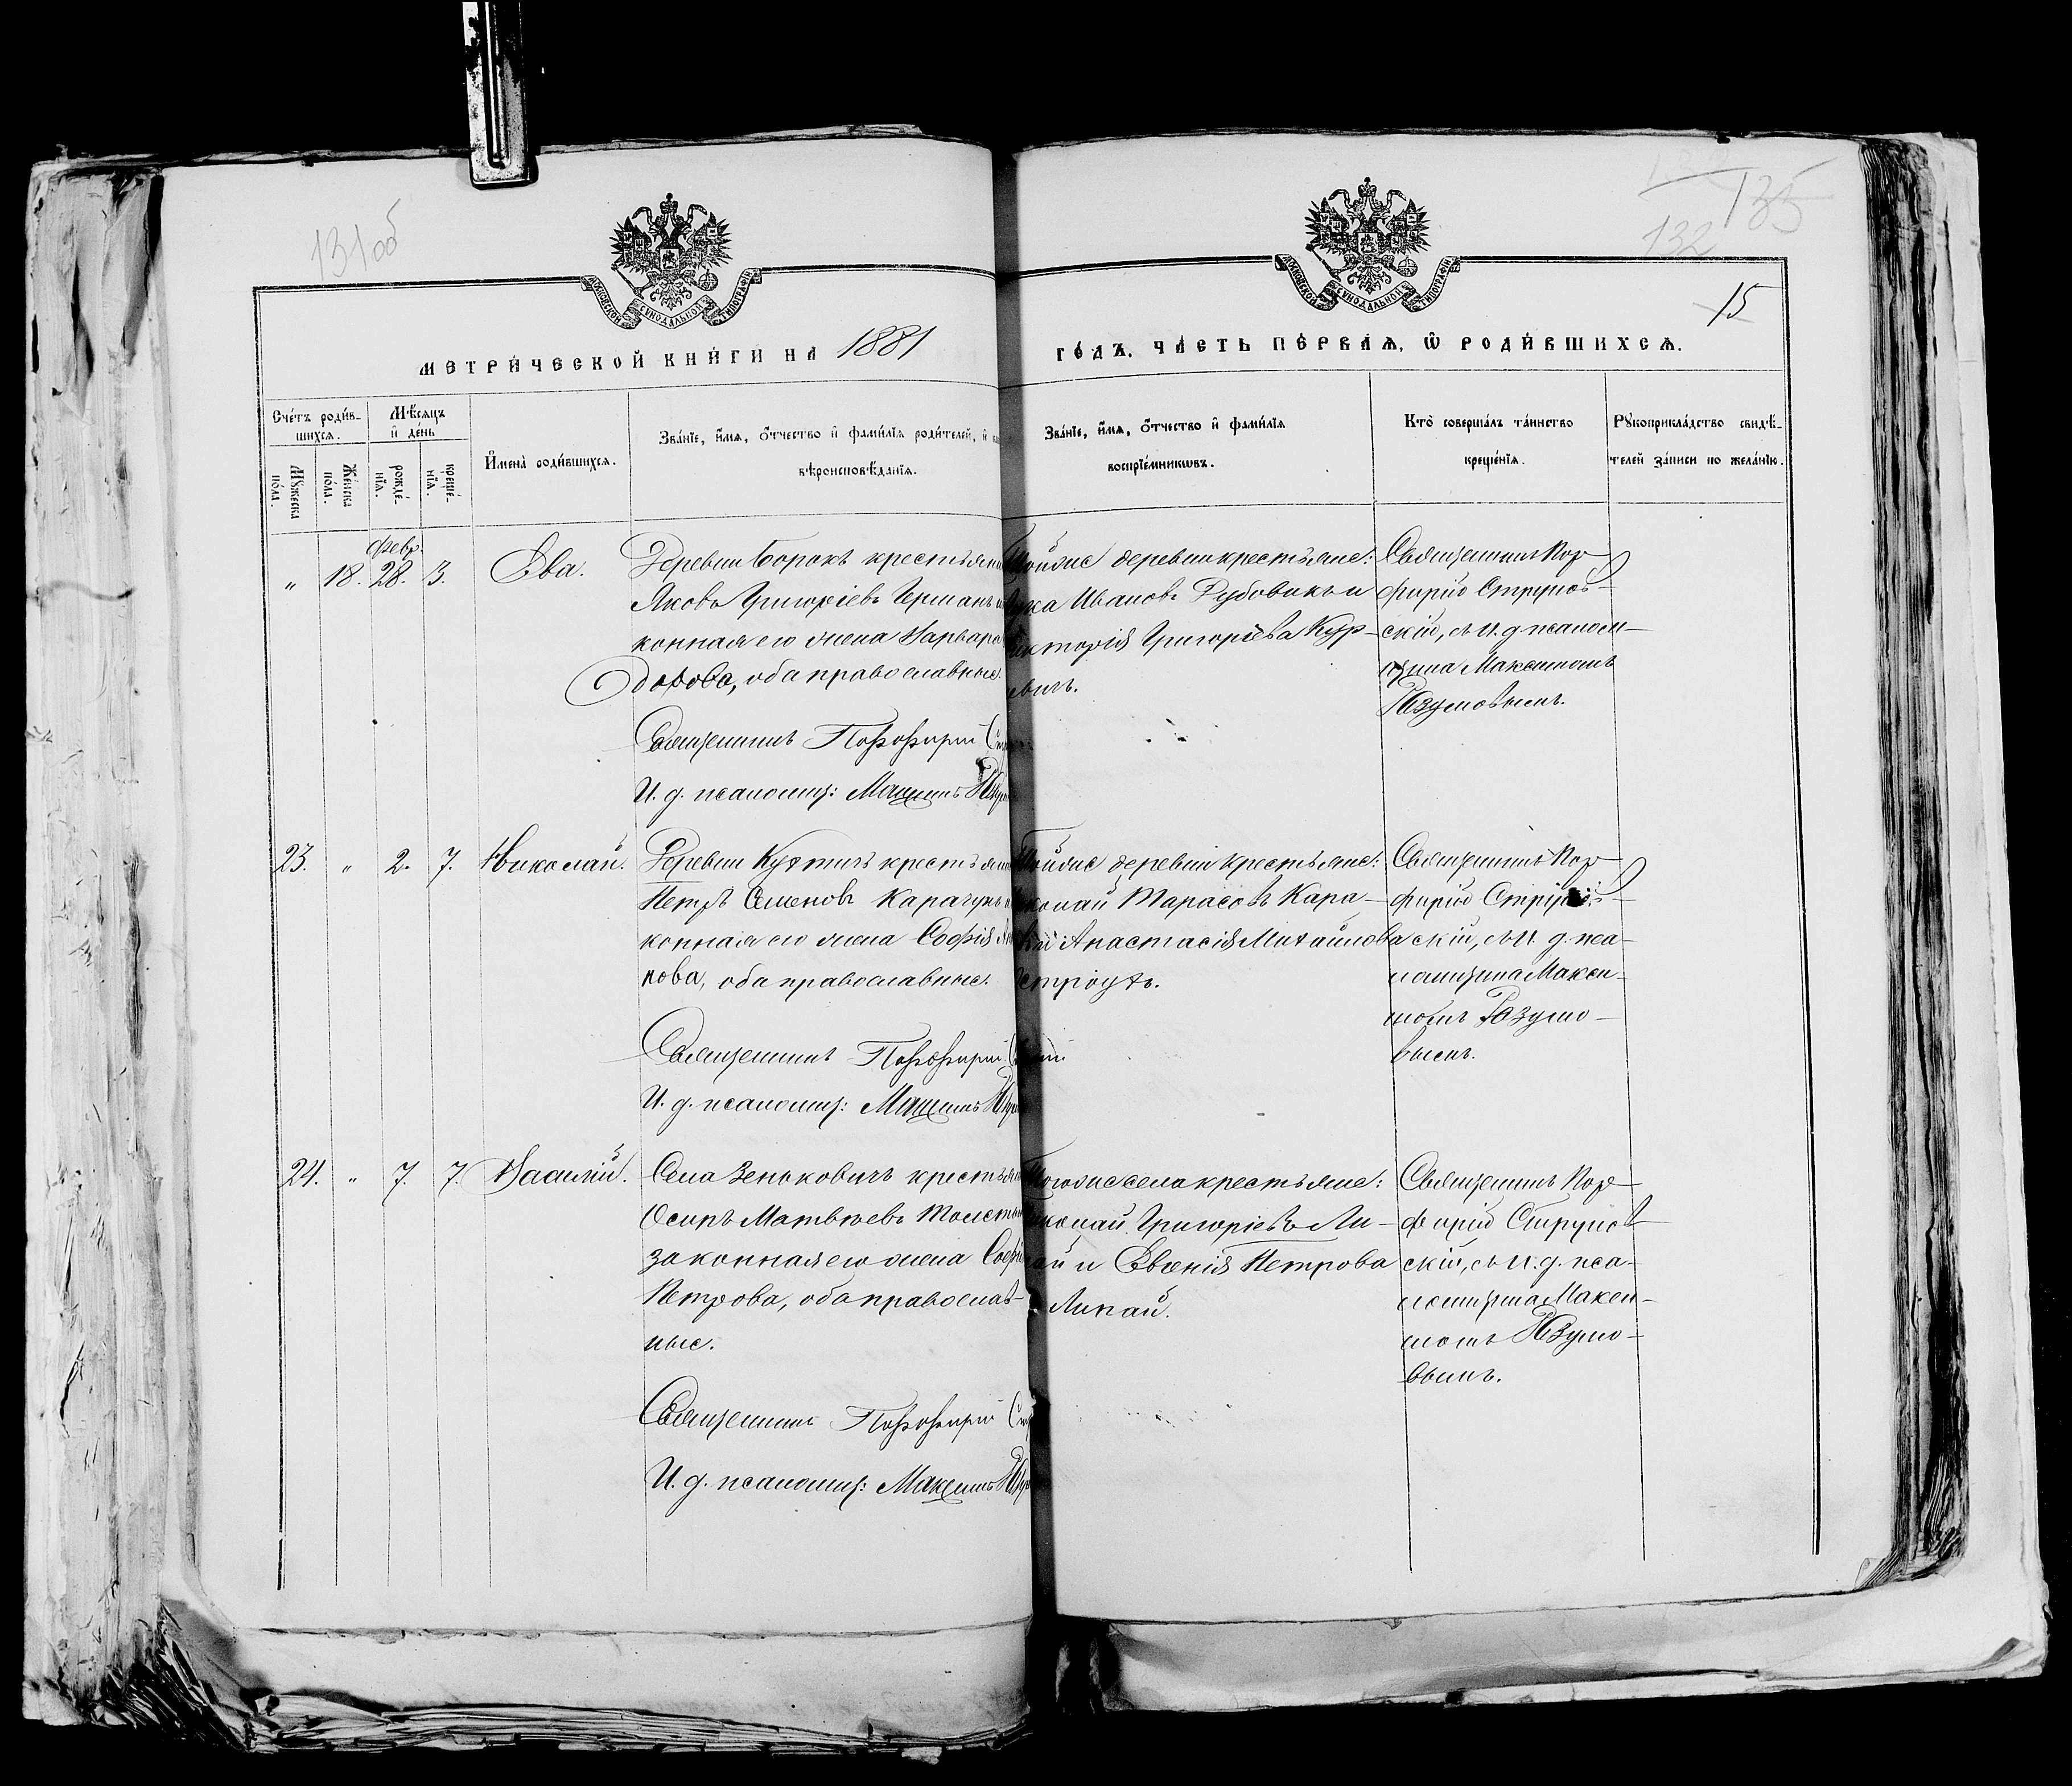 131об
132
135
15
МОСКОВСКОЙ СѴНОДАЛЬНОЙ ТИПОГРАФІИ
МОСКОВСКОЙ СѴНОДАЛЬНОЙ ТИПОГРАФІИ
МЕТРИ́ЧЕСКОЙ КНИ́ГИ НА 1881
ГО́ДЪ, ЧА́СТЬ ПЕ́РВАѦ, Ѿ РОДИ́ВШИХСѦ.
Сче́тъ роди́в-
шихсѧ.
Мꙋ́жеска
по́ла.
Же́нска
по́ла.
Мѣ́сѧцъ
и҆ де́нь
рожде́-
нїѧ.
креще́-
нїѧ.
И҆мена̀ роди́вшихсѧ.
Зва́нїе, и҆́мѧ, ѻ҆́тчество и҆ фами́лїѧ роди́телей, и҆
вѣроисповѣ́данїѧ.
Зва́нїе, и҆́мѧ, ѻ҆́тчество и҆ фами́лїѧ
воспрїе́мникѡвъ.
Кто̀ соверша́лъ та́инство
креще́нїѧ.
Рꙋкоприкла́дство свидѣ́-
телей за́писи по жела́нїю.
Февр.
„ 18. 28. 3. Ева.
Деревни Борокъ крестьяни
Яковъ Григоріевъ Германъ и
конная его жена Варвара
дорова, оба православные.
Священникъ Порфирій
И. д. псаломщ: Максимъ
тойже деревни крестьяне:
Лука Ивановъ Дубовикъ и
Викторія Григоріева Кур-
евичъ.
Священникъ Пор-
фирій Струков-
скій, съ И. д. псалом-
щика Максимомъ
Разумовымъ.
23. „ 2. 7. Николай.
Деревни Кухтичъ крестьяни
Петръ Семеновъ Карачунъ и
конная его жена Софія
кова, оба православные.
Священникъ Порфирій
И. д. псаломщ: Максимъ
тойже деревни крестьяне:
Николай Тарасовъ Кара-
Анастасія Михайлова
Священникъ Пор-
фирій
скій, съ И. д. пса-
ломщика Макси-
момъ Разумо-
вымъ.
24. „ 7. 7. Василій.
Села Зеньковичъ крестьян
Осипъ Матвѣевъ
законная его жена Софі
Петрова, оба православ-
ные.
Священникъ Порфирій
И. д. псаломщ: Максимъ
тогоже села крестьяне:
Николай Григоріевъ Ли-
пай и Евгенія Петрова
Липай.
Священникъ Пор-
фирій Струков-
скій, съ И. д. пса-
ломщика Макси-
момъ Разумо-
вымъ.